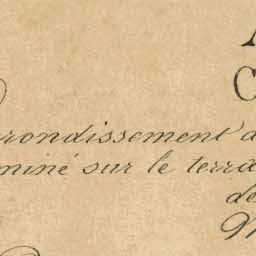 C
rrondissement d
miné sur le terra
de
M